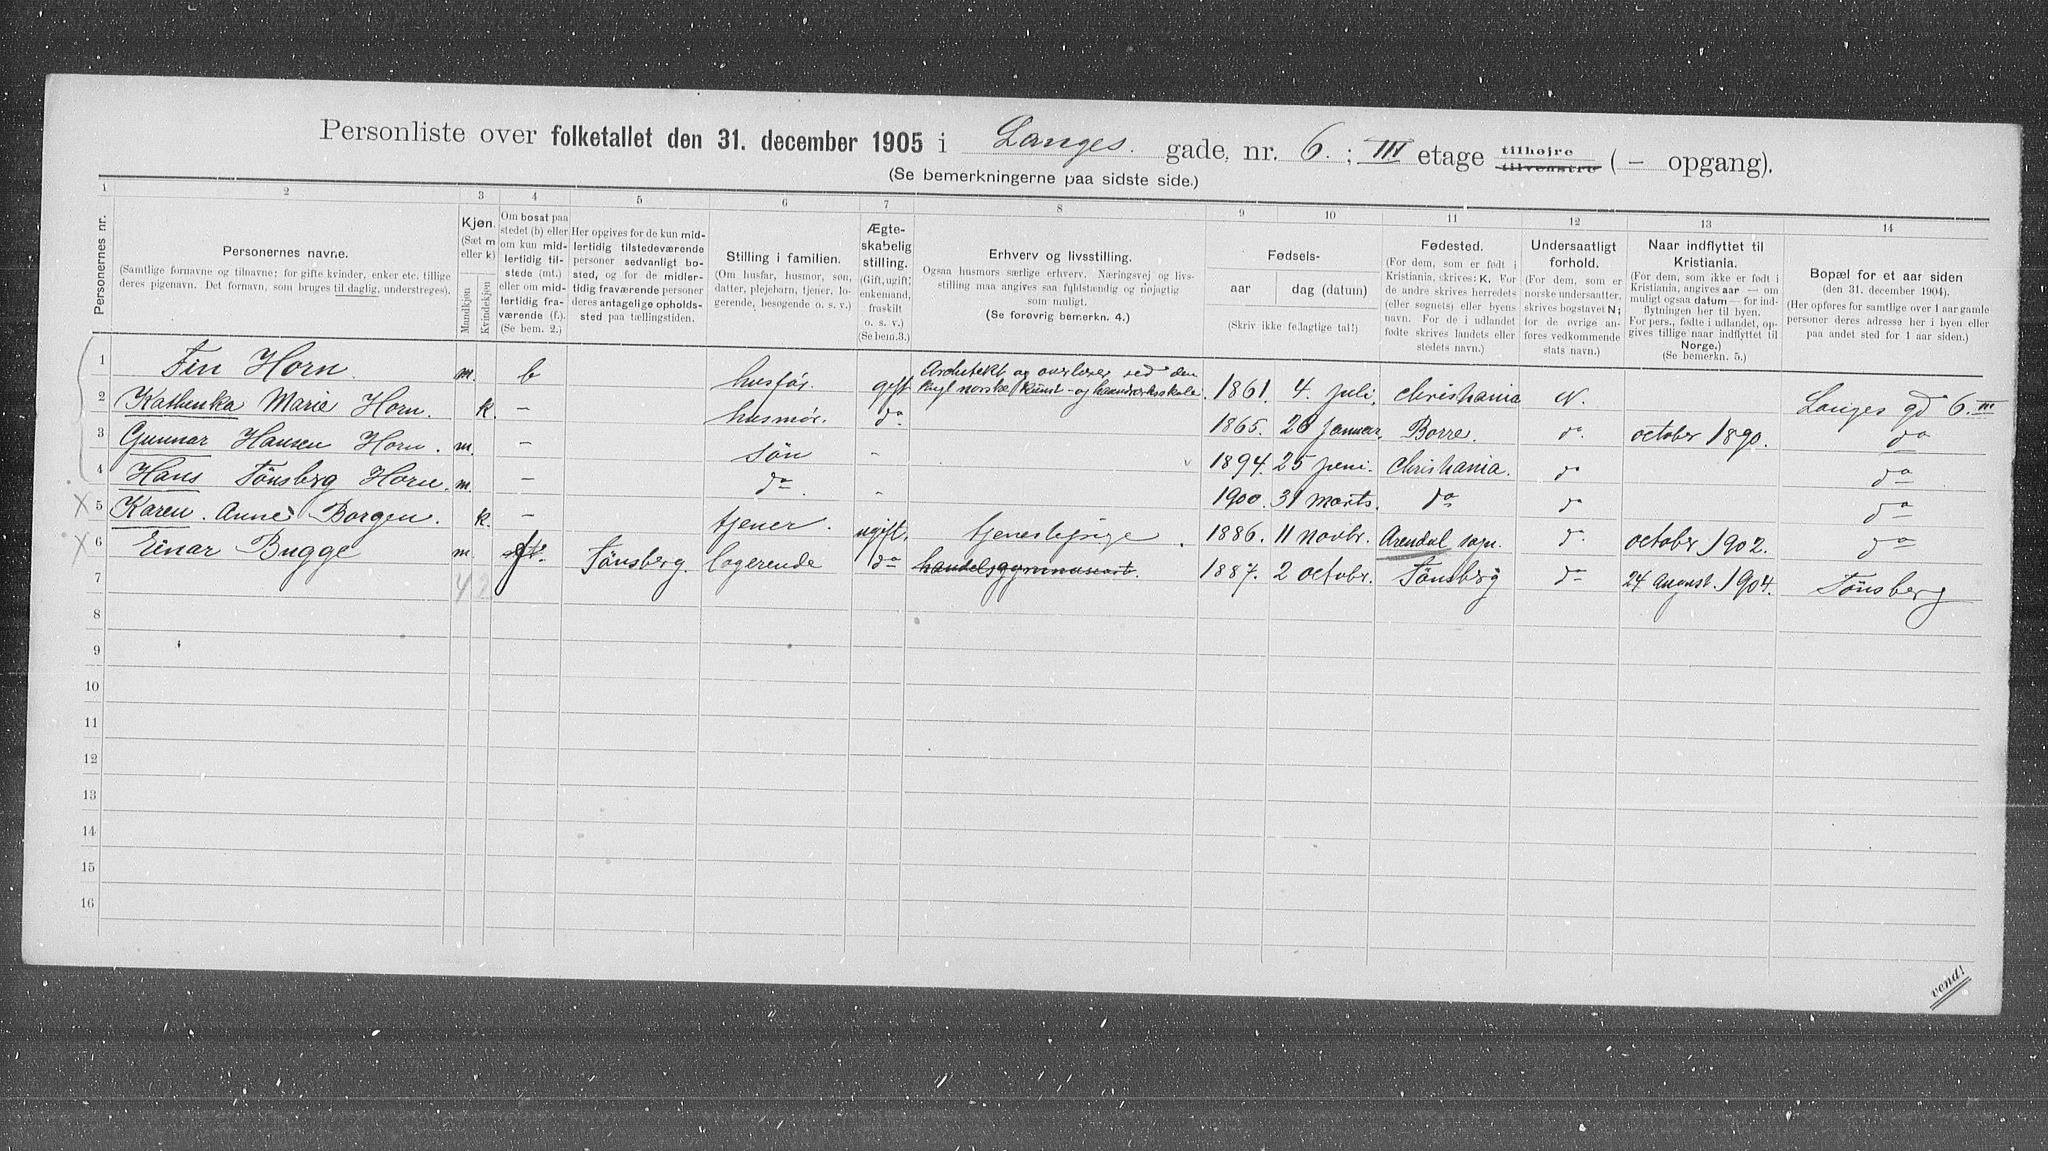 Personliste over folketallet den 31. december 1905 i Langes. gade, nr. 6. ; III etage tilhøjre tilvenstre (– opgang).
(Se bemerkningerne paa sidste side.)
1 2 3 4 5 6 7 8 9 10 11 12 13 14
Personernes nr.
Personernes navne.
(Samtlige fornavne og tilnavne; for gifte kvinder, enker etc. tillige
deres pigenavn. Det fornavn, som bruges til daglig, understreges).
Kjøn.
(Sæt m
eller k)
Mandkjøn
Kvindekjøn
Om bosat paa
stedet (b) eller
om kun mid-
lertidig til-
stede (mt.)
eller om mid-
lertidig fra-
værende (f.).
(Se bem. 2.)
Her opgives for de kun mid-
lertidig tilstedeværende
personer sedvanligt bo-
sted, og for de midler-
tidig fraværende personer
deres antagelige opholds-
sted paa tællingstiden.
Stilling i familien.
(Om husfar, husmor, søn,
datter, plejebarn, tjener, lo-
gerende, besøgende o. s. v.)
Ægte-
skabelig
stilling.
(Gift, ugift,
enkemand,
fraskilt
o. s. v.)
(Se bem.3.)
Erhverv og livsstilling.
Ogsaa husmors særlige erhverv. Næringsvej og livs-
stilling maa angives saa fyldstændig og nøjagtig
som muligt.
(Se forøvrig bemerkn. 4.)
Fødsels-
aar
dag (datum)
(Skriv ikke fejlagtige tal!)
Fødested.
(For dem, som er født i
Kristiania, skrives: K. For
de andre skrives herredets
(eller sognets) eller byens
navn. For de i udlandet
fødte skrives landets eller
stedets navn.)
Undersaatligt
forhold.
(For dem, som er
norske undersaatter,
skrives bogstavet N;
for de øvrige an-
føres vedkommende
stats navn.)
Naar indflyttet til
Kristiania.
(For dem, som ikke er født i
Kristiania, angives aar — om
muligt ogsaa datum — for ind-
flytningen her til byen.
For pers., fødte i udlandet, op-
gives tillige naar indflyttet til
Norge.)
(Se bemerkn. 5.)
Bopæl for et aar siden
(den 31. december 1904.)
(Her opføres for samtlige over 1 aar gamle
personer deres adresse her i byen eller
paa andet sted for 1 aar siden.)
1 Fin Horn. m. b husfar. gift Architekt og overlærer ved den kngl norske Kunst- og haandværksskole. 1861. 4. juli. Christiania N. Langes gd 6. III
2 Kathinka Marie Horn. k. – husmor. do 1865. 26 januar. Borre. do october 1890. do
3 Gunnar Hansen Horn. m. – søn - 1894. 25 juni. Christiania. do do
4 Hans Tönsberg Horn. m. – do. - 1900. 31 marts. do do do
5 Karen. Anne Borgen. k. – tjener. ugift. tjenestepige. 1886. 11 novbr. Arendal sogn. do. october 1902. do
6 Einar Bugge m. Tönsberg. logerende do handelsgymnasist. 1887. 2 octobr. Tönsberg do 24 august. 1904. Tönsberg
7
8
9
10
11
12
13
14
15
16
vend!